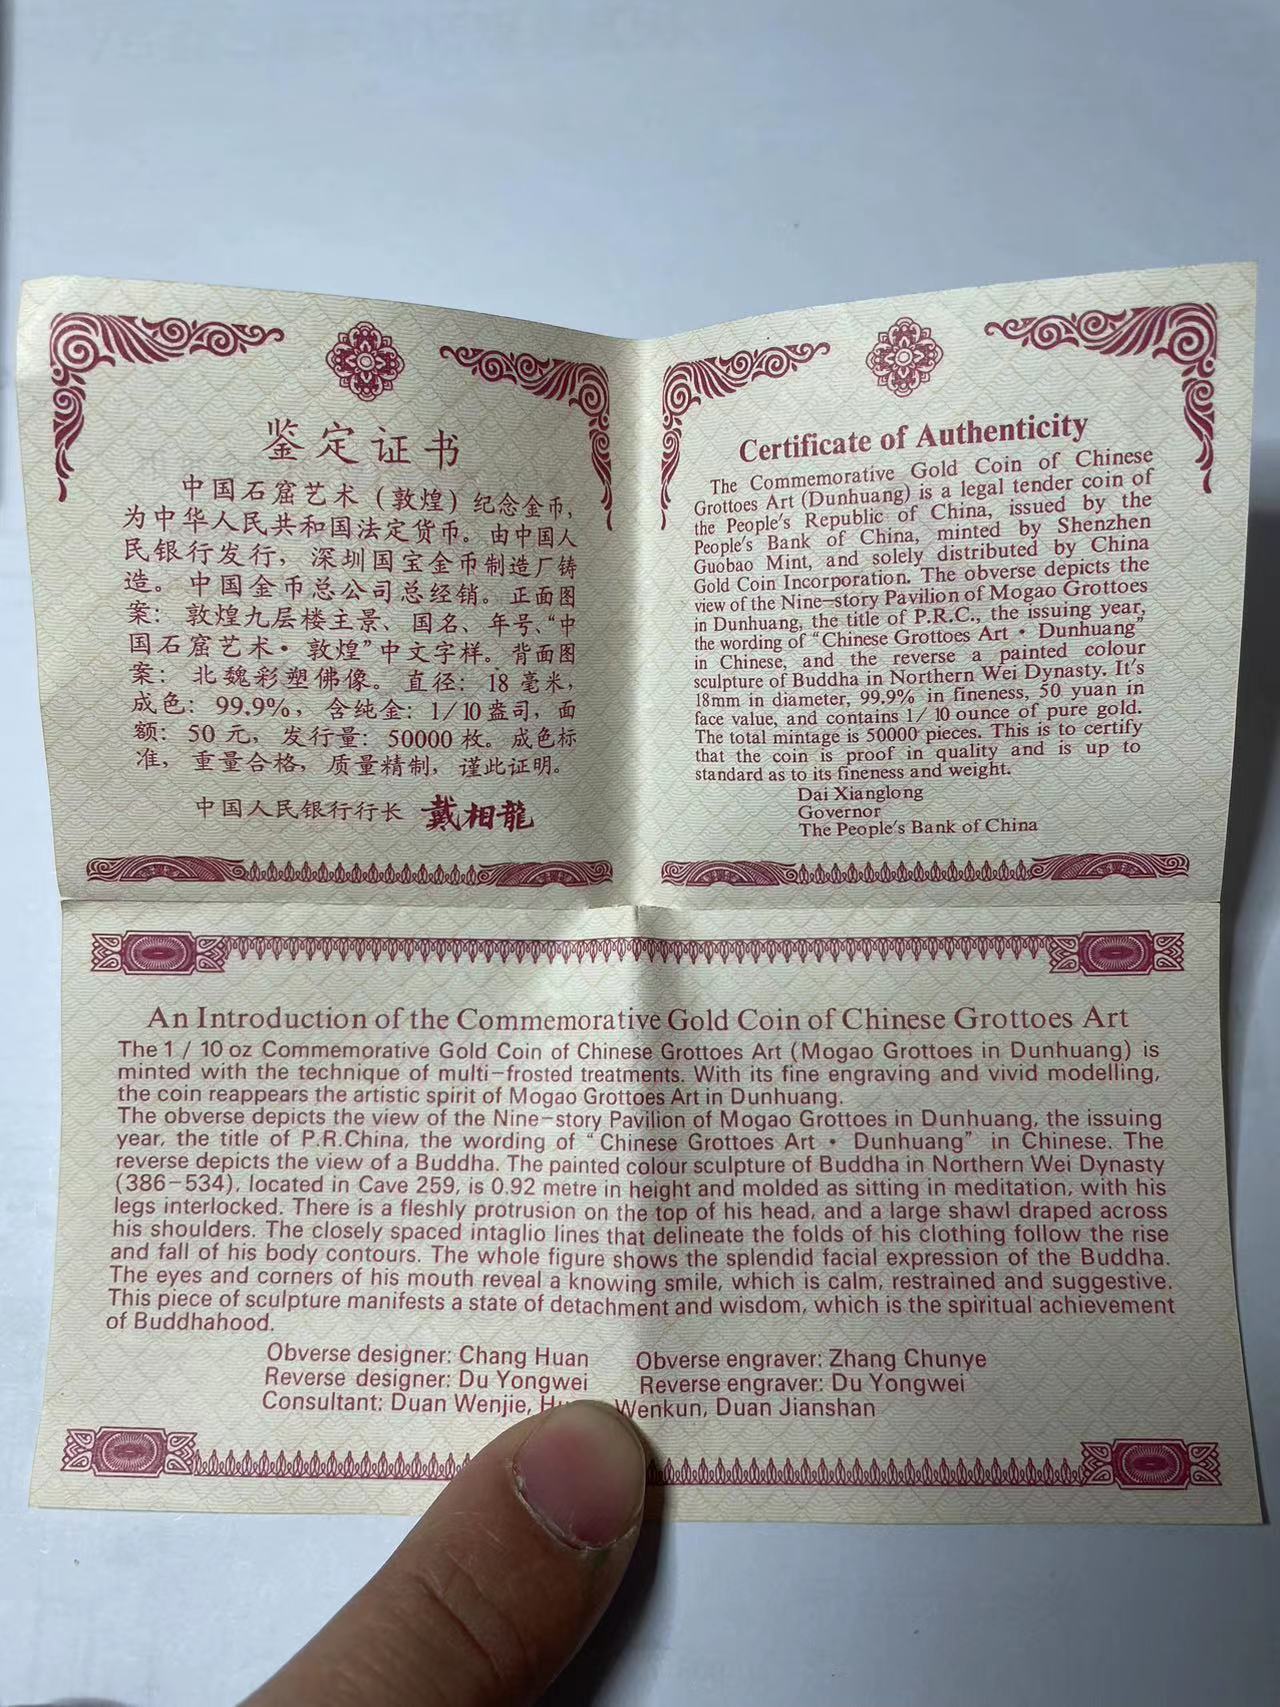 鉴定证书
中国石窟艺术（敦煌）纪念金币，
为中华人民共和国法定货币。由中国人
民银行发行，深圳国宝金币制造厂铸
造。中国金币总公司总经销。正面图
案：敦煌九层楼主景、国名、年号、“中
国石窟艺术·敦煌”中文字样。背面图
案：北魏彩塑佛像。直径：18毫米，
成色：99.9%，含纯金：1/10盎司，面
额：50元，发行量：50000枚。成色标
准，重量合格，质量精制，谨此证明。
中国人民银行行长 戴相龍
Certificate of Authenticity
The Commemorative Gold Coin of Chinese
Grottoes Art (Dunhuang) is a legal tender coin of
the People's Republic of China, issued by the
People's Bank of China, minted by Shenzhen
Guobao Mint, and solely distributed by China
Gold Coin Incorporation. The obverse depicts the
view of the Nine-story Pavilion of Mogao Grottoes
in Dunhuang, the title of P.R.C., the issuing year,
the wording of “Chinese Grottoes Art · Dunhuang”
in Chinese, and the reverse a painted colour
sculpture of Buddha in Northern Wei Dynasty. It's
18mm in diameter, 99.9% in fineness, 50 yuan in
face value, and contains 1/10 ounce of pure gold.
The total mintage is 50000 pieces. This is to certify
that the coin is proof in quality and is up to
standard as to its fineness and weight.
Dai Xianglong
Governor
The People's Bank of China
An Introduction of the Commemorative Gold Coin of Chinese Grottoes Art
The 1 / 10 oz Commemorative Gold Coin of Chinese Grottoes Art (Mogao Grottoes in Dunhuang) is
minted with the technique of multi-frosted treatments. With its fine engraving and vivid modelling,
the coin reappears the artistic spirit of Mogao Grottoes Art in Dunhuang.
The obverse depicts the view of the Nine-story Pavilion of Mogao Grottoes in Dunhuang, the issuing
year, the title of P.R.China, the wording of “Chinese Grottoes Art · Dunhuang” in Chinese. The
reverse depicts the view of a Buddha. The painted colour sculpture of Buddha in Northern Wei Dynasty
(386-534), located in Cave 259, is 0.92 metre in height and molded as sitting in meditation, with his
legs interlocked. There is a fleshly protrusion on the top of his head, and a large shawl draped across
his shoulders. The closely spaced intaglio lines that delineate the folds of his clothing follow the rise
and fall of his body contours. The whole figure shows the splendid facial expression of the Buddha.
The eyes and corners of his mouth reveal a knowing smile, which is calm, restrained and suggestive.
This piece of sculpture manifests a state of detachment and wisdom, which is the spiritual achievement
of Buddhahood.
Obverse designer: Chang Huan Obverse engraver: Zhang Chunye
Reverse designer: Du Yongwei Reverse engraver: Du Yongwei
Consultant: Duan Wenjie, Wenkun, Duan Jianshan